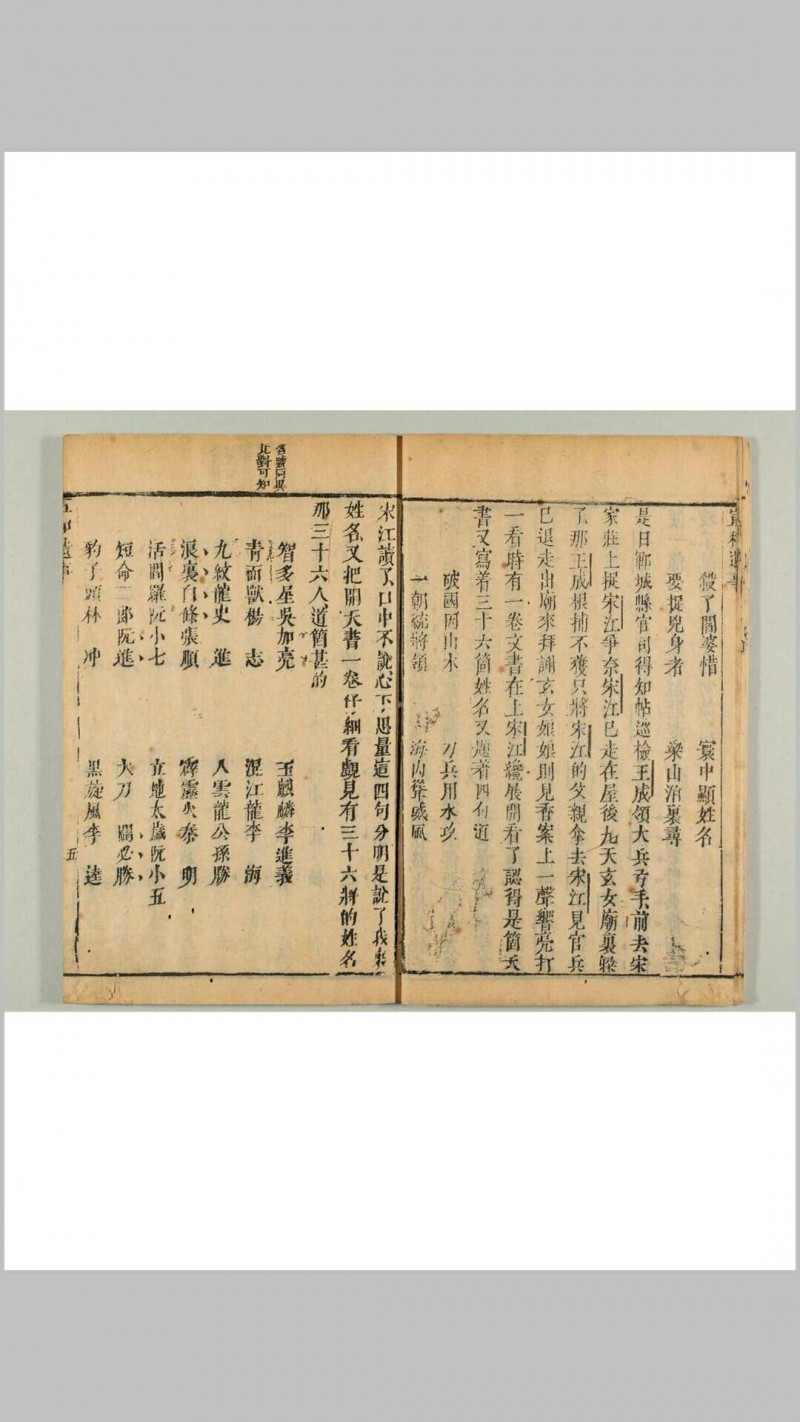 宣和遺事
殺了閻婆惜　寰中顯姓名
要捉兇身者　梁山濼裏尋
是日鄆城縣官司得知帖巡檢王成領大兵弓手前去宋
家莊上捉宋江爭奈宋江已走在屋後九天玄女廟裏躱
了那王成根捕不獲只將宋江的父親拿去宋江見官兵
已退走出廟來拜謝玄女娘娘則見香案上一聲響亮打
一看時有一卷文書在上宋江纔展開看了認得是箇天
書又寫着三十六箇姓名又題着四句道
破國因山木　刀兵用水攻
一朝充將領　海內聳威風
宋江讀了口中不說心下思量這四句分明是說了我裏
姓名又把開天書一卷仔細看覷見有三十六將的姓名
那三十六人道箇甚的
名號同異
比對可知
智多星吳加亮　玉麒麟李進義
青面獸楊志　混江龍李海
九紋龍史進　入雲龍公孫勝
浪裏白條張順　霹靂火秦明
活閻羅阮小七　立地太歲阮小五
短命二郎阮進　大刀關必勝
豹子頭林冲　黑旋風李逵
五